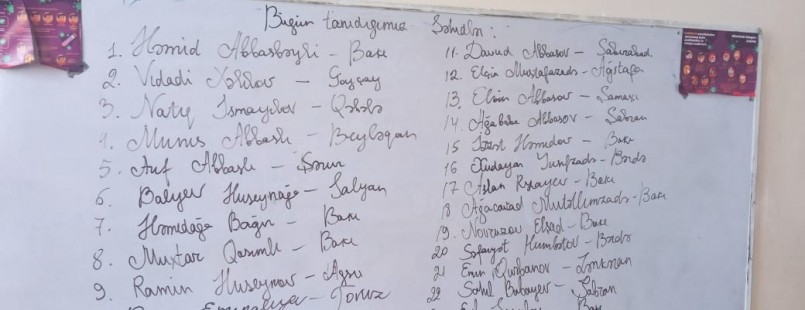 Bugün tanıdığımız Şəhidlər :
1. Həmid Abbasbəyli - Bakı
2. Vidadi Xəlilov - Göyçay
3. Natiq İsmayılov - Qəbələ
4. Munis Abbaslı - Beyləqan
5. Arif Abbaslı - Şərur
6. Balyev Huseynağa - Salyan
7. Həmidağa Bağır - Bakı
8. Muxtar Qasımlı - Bakı
9. Ramin Huseynov - Ağsu
Tovuz
11. Davud Abbasov - Sabirabad
12. Elçin Mustafazadə - Ağstafa
13. Elvin Abbasov - Şamaxı
14. Ağababa Abbasov - Şabran
15 Həmidov - Bakı
16 Xudayar Yusifzadə - Bərdə
17 Aslan Rzayev - Bakı
18 Ağacavad Mutəllimzadə - Bakı
19. Novruzov Elşad - Bakı
20 Səfayət Humbatov - Bərdə
21 Emin Qurbanov - Lənkəran
22 Sahil Babayev - Şabran
Bakı